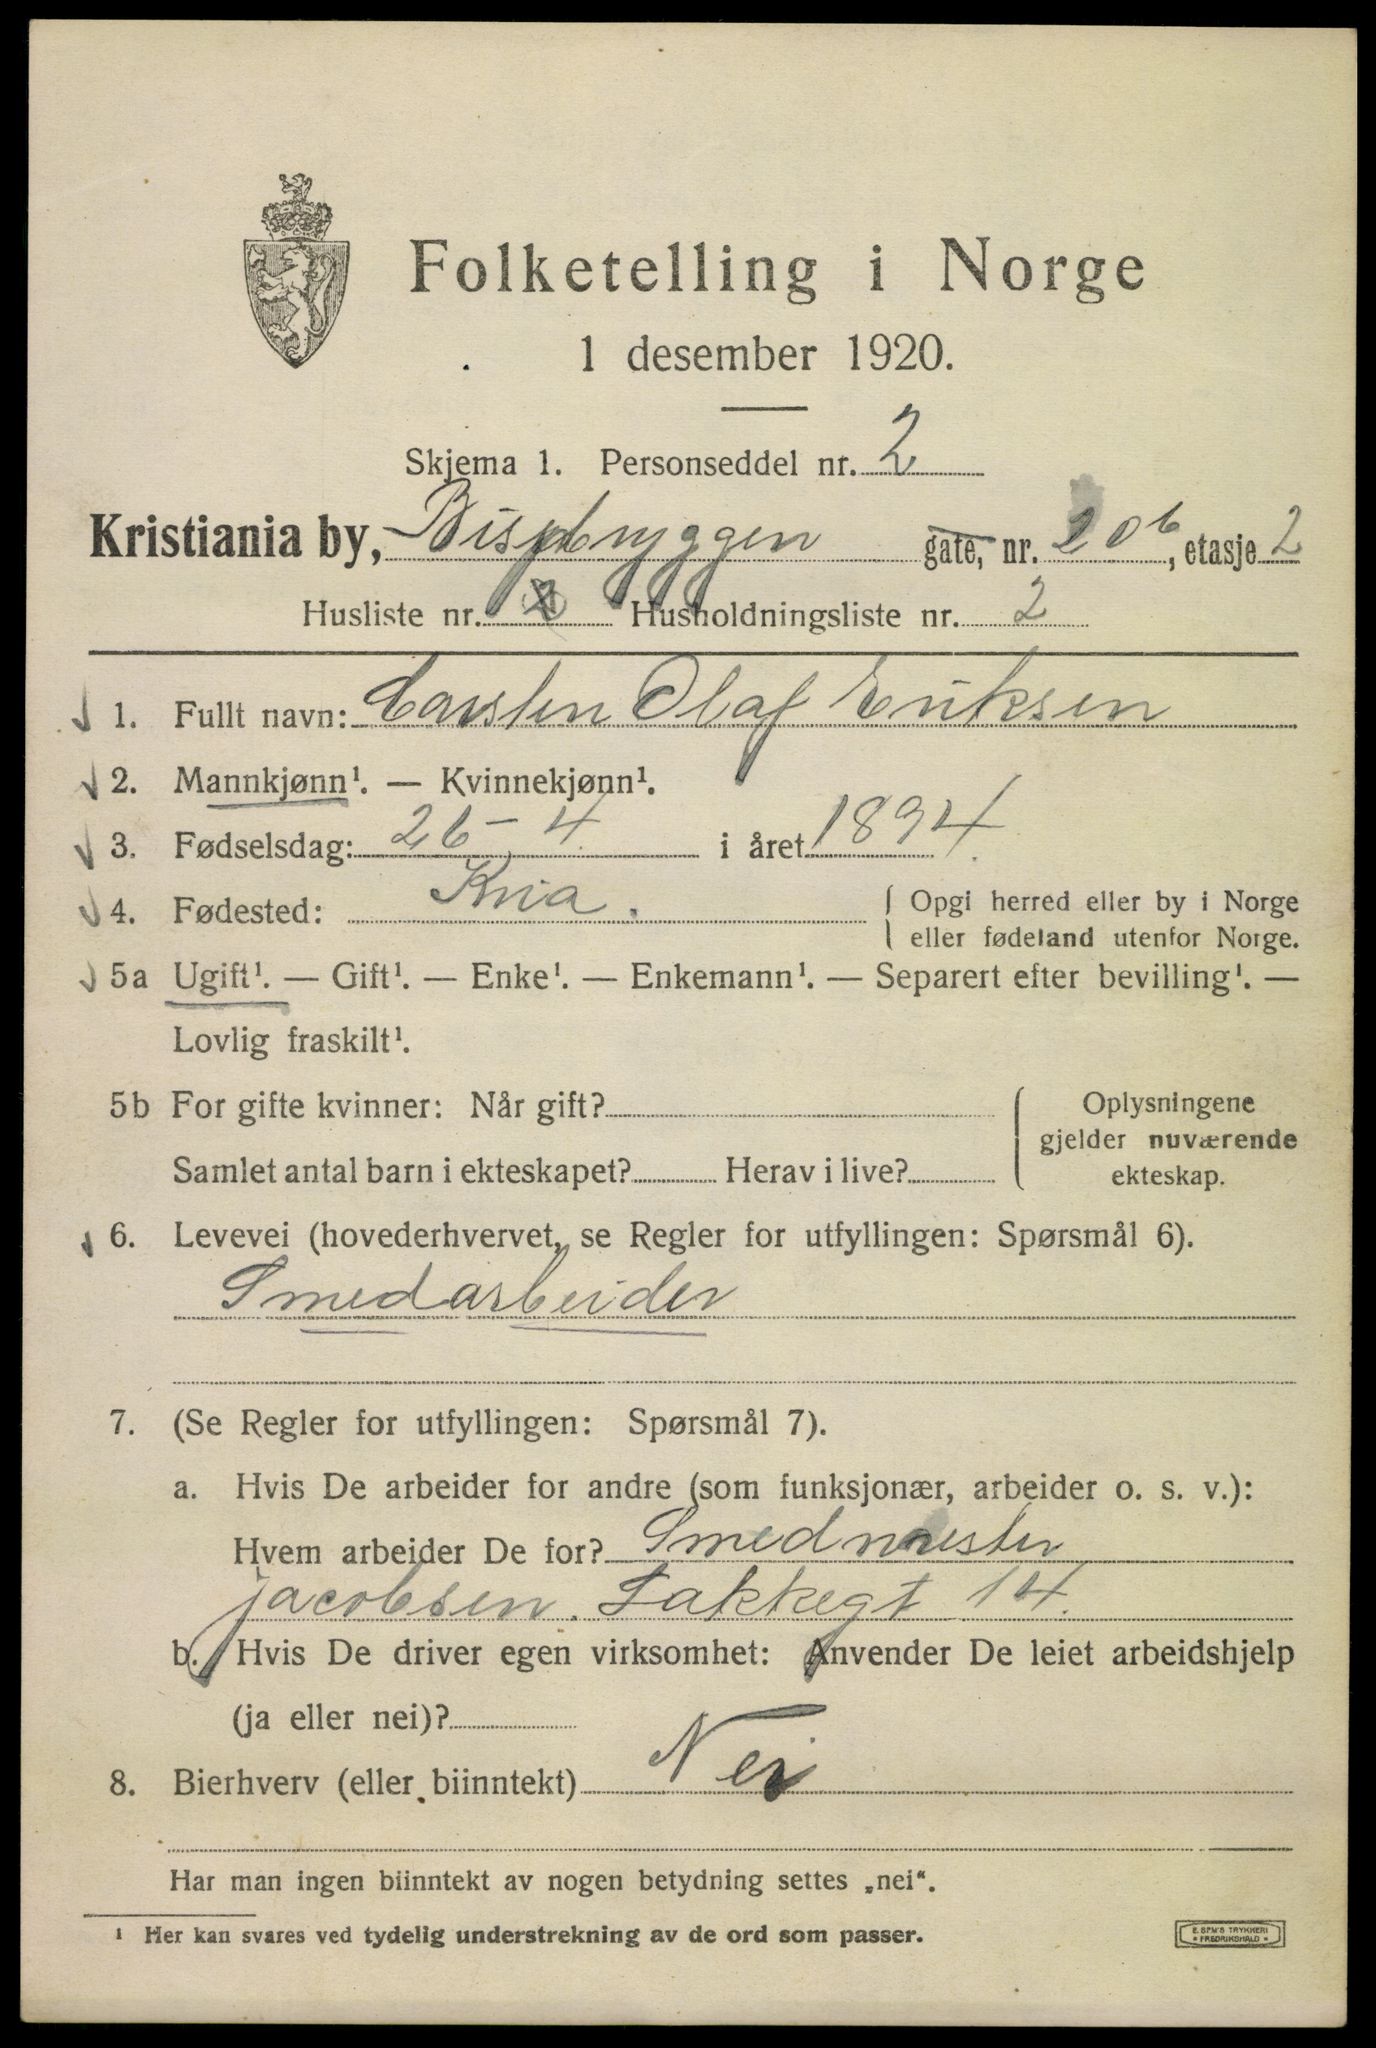 Folketelling i Norge
1 desember 1920.
Skjema 1. Personseddel nr. 2
Kristiania by, Bispebryggen gate, nr. 20b, etasje 2
Husliste nr. Husholdningsliste nr. 2
1. Fullt navn: Carsten Olaf Eriksen
2. Mannkjønn¹. — Kvinnekjønn¹.
3. Fødselsdag: 26 - 4. i året 1894.
4. Fødested: Kria. Opgi herred eller by i Norge
eller fødeland utenfor Norge.
5a Ugift¹. — Gift¹. — Enke¹. — Enkemann¹. — Separert efter bevilling¹. —
Lovlig fraskilt¹.
5b For gifte kvinner: Når gift? Oplysningene
gjelder nuværende
Samlet antal barn i ekteskapet? Herav i live? ekteskap.
6. Levevei (hovederhvervet, se Regler for utfyllingen: Spørsmål 6).
Smedarbeider
7. (Se Regler for utfyllingen: Spørsmål 7).
a. Hvis De arbeider for andre (som funksjonær, arbeider o. s. v.):
Hvem arbeider De for? Smedmester
Jacobsen. Lakkegt 14.
b. Hvis De driver egen virksomhet: Anvender De leiet arbeidshjelp
(ja eller nei)?
8. Bierhverv (eller biinntekt) Nei
Har man ingen biinntekt av nogen betydning settes „nei“.
¹ Her kan svares ved tydelig understrekning av de ord som passer.
E. SEM'S TRYKKERI
* FREDRIKSHALD *